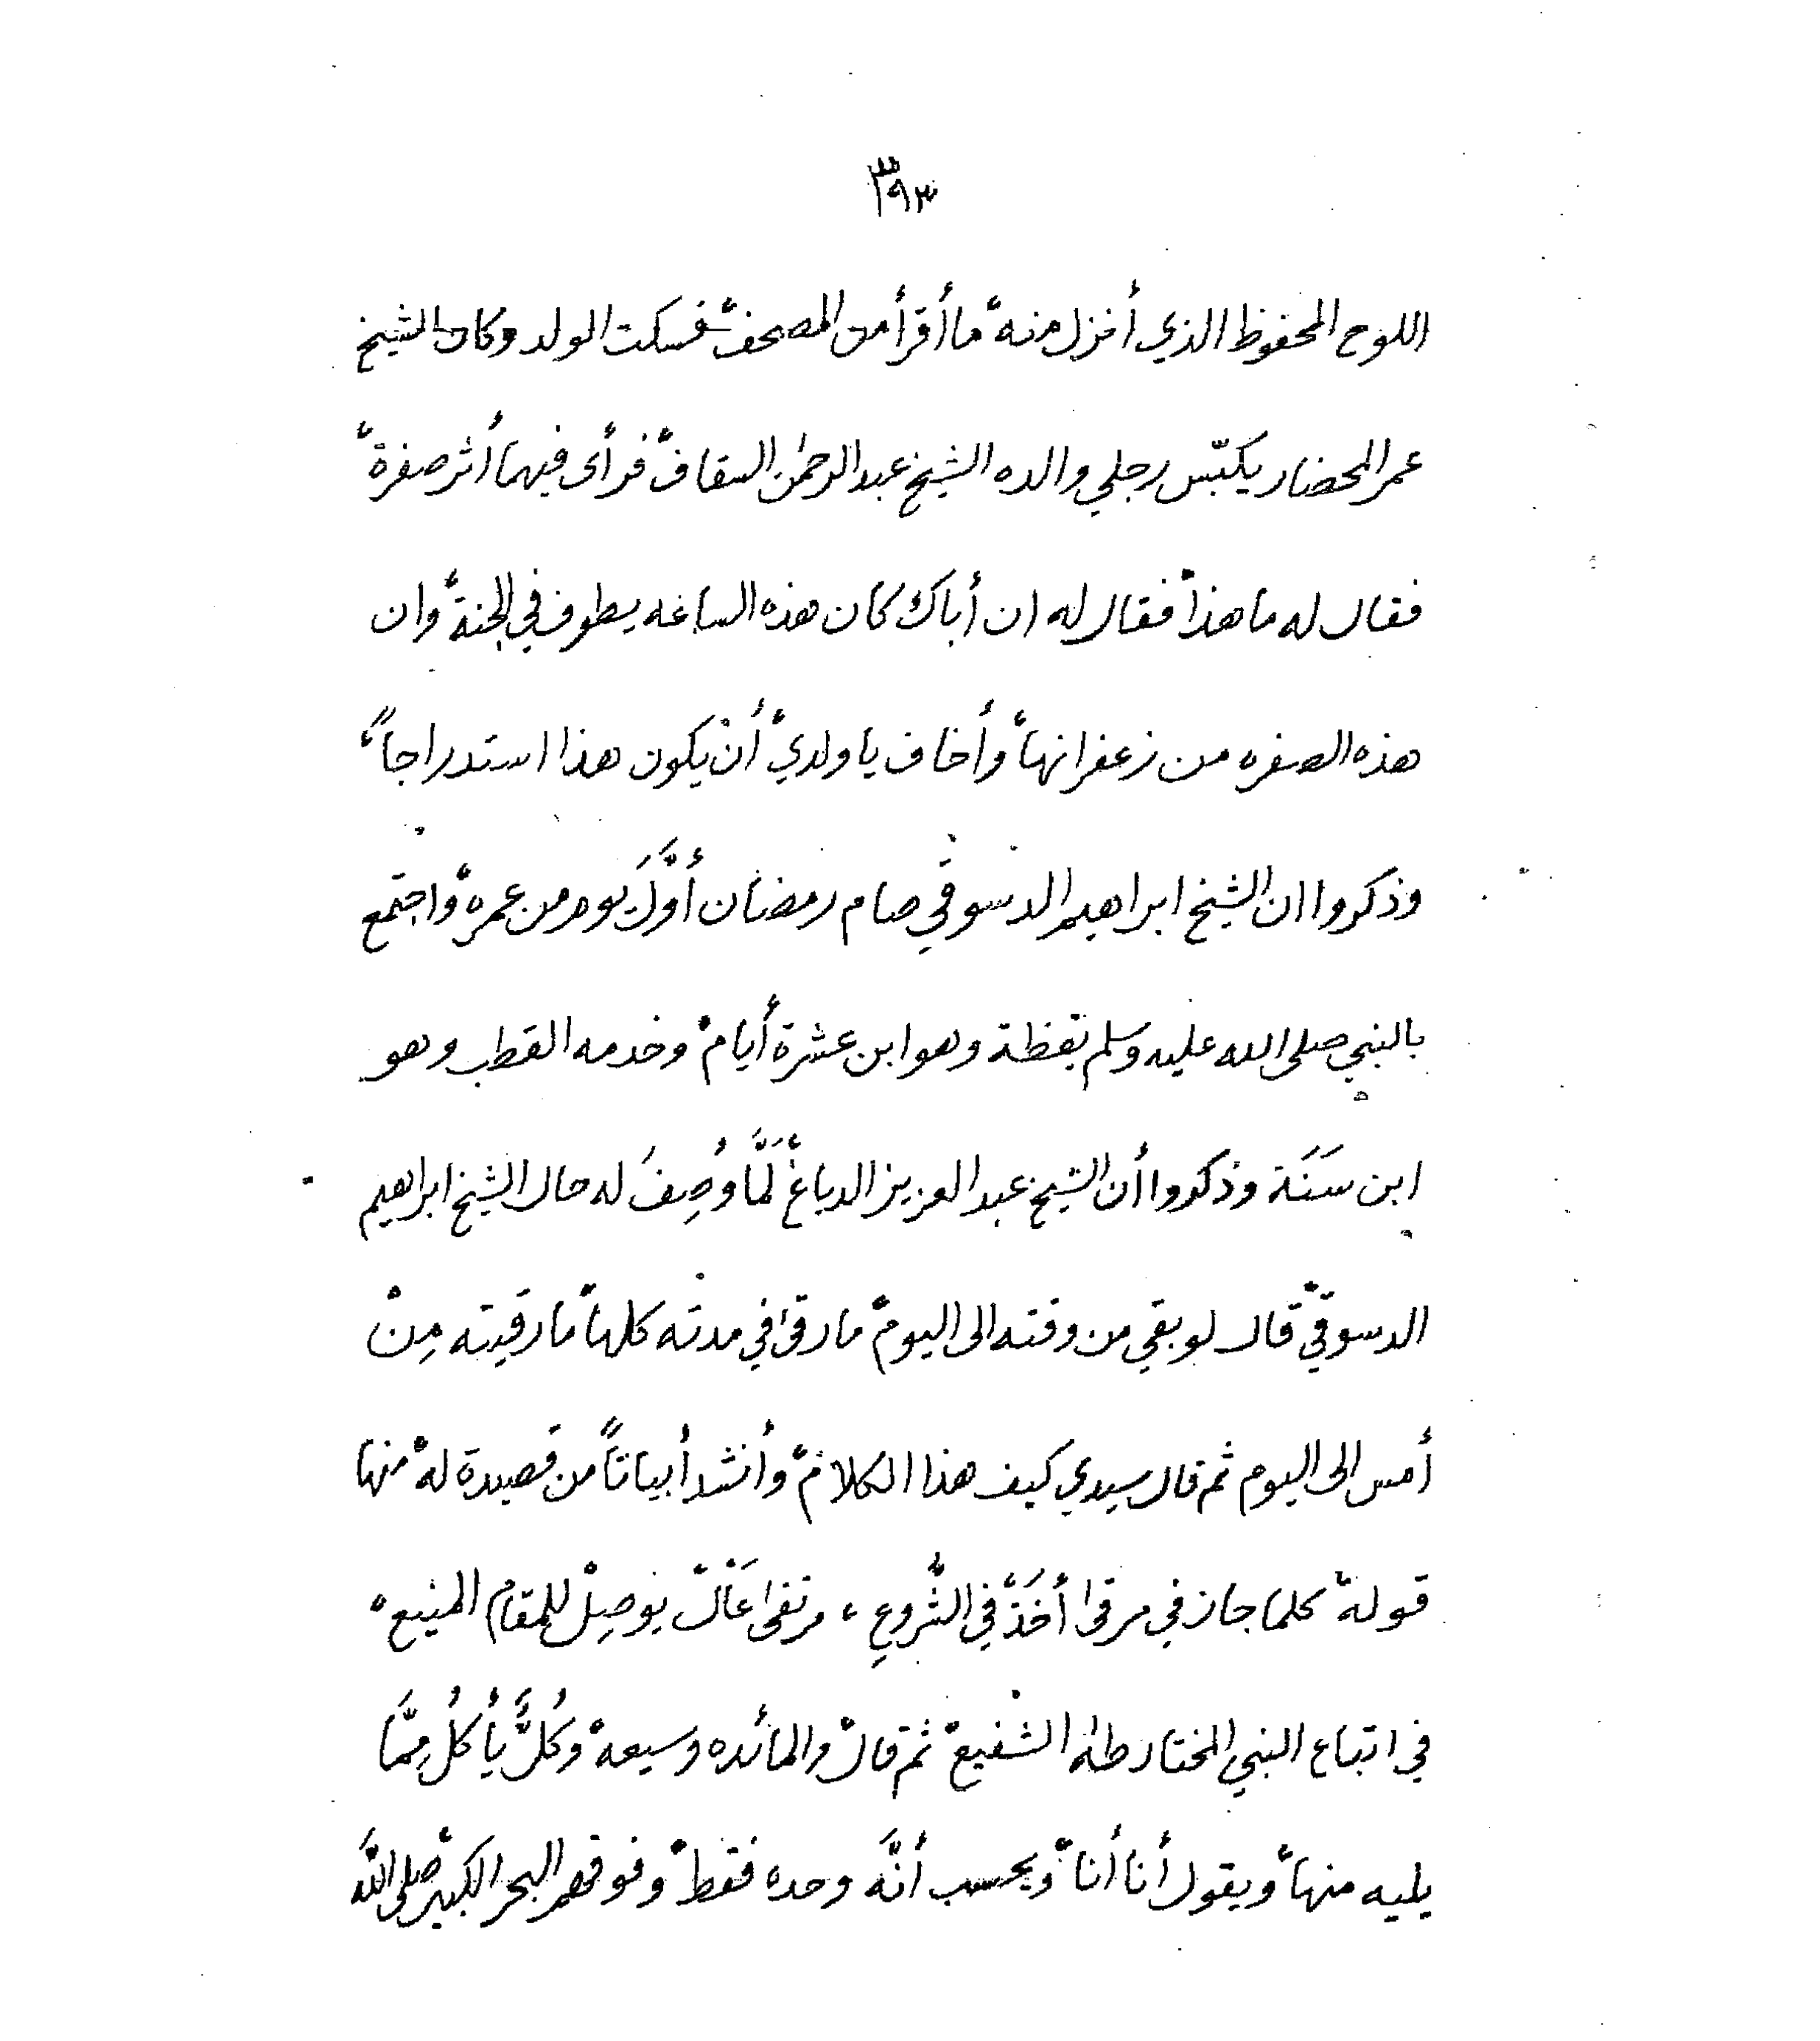 ٣٩٣
اللوح المحفوظ الذي أنزل منه، ما أقرأ من المصحف، فسكت الولد وكان الشيخ
عمر المحضار يكبّس رجلي والده الشيخ عبد الرحمٰن السقاف، فرأى فيهما أثر صفرة،
فقال له ما هذا، فقال له ان أباك كان هذه الساعه يطوف في الجنة، وان
هذه الصفره من زعفرانها، وأخاف يا ولدي، أنْ يكون هذا استدراجاً،
وذكروا ان الشيخ ابراهيم الدسوقي صام رمضان أوَّلَ يوم من عمره، واجتمع
بالنبي صلى الله عليه وسلم يقظة وهو ابن عشرة أيام، وخدمه القطب وهو
ابن سَنَة وذكروا أن الشيخ عبد العزيز الدباغ، لَمَّا وُصِفَ له حال الشيخ ابراهيم
الدسوقي، قال لو بقي من وقته الى اليوم، ما رقىٰ في مدته كلها، ما رقيته مِنْ
أمس الى اليوم ثم قال سيدي كيف هذا الكلام، وأنشد أبياتاً من قصيدة له، منها
قوله، كلما جاز في مرقىٰ أخَذْ في الشُّروعِ، مرتقىٰ عَالْ يوصِلْ للمقام المنيع،
في اتباع النبي المختار طٰه الشفيع، ثم قال، والمأئده وسيعه، وكُلٌّ يأكُلُ مِمَّا
يليه منها، ويقول أنا أنا، ويحسب أنَّه وحده فقط، وفوقهم البحر الكبير، صلى اللَّه